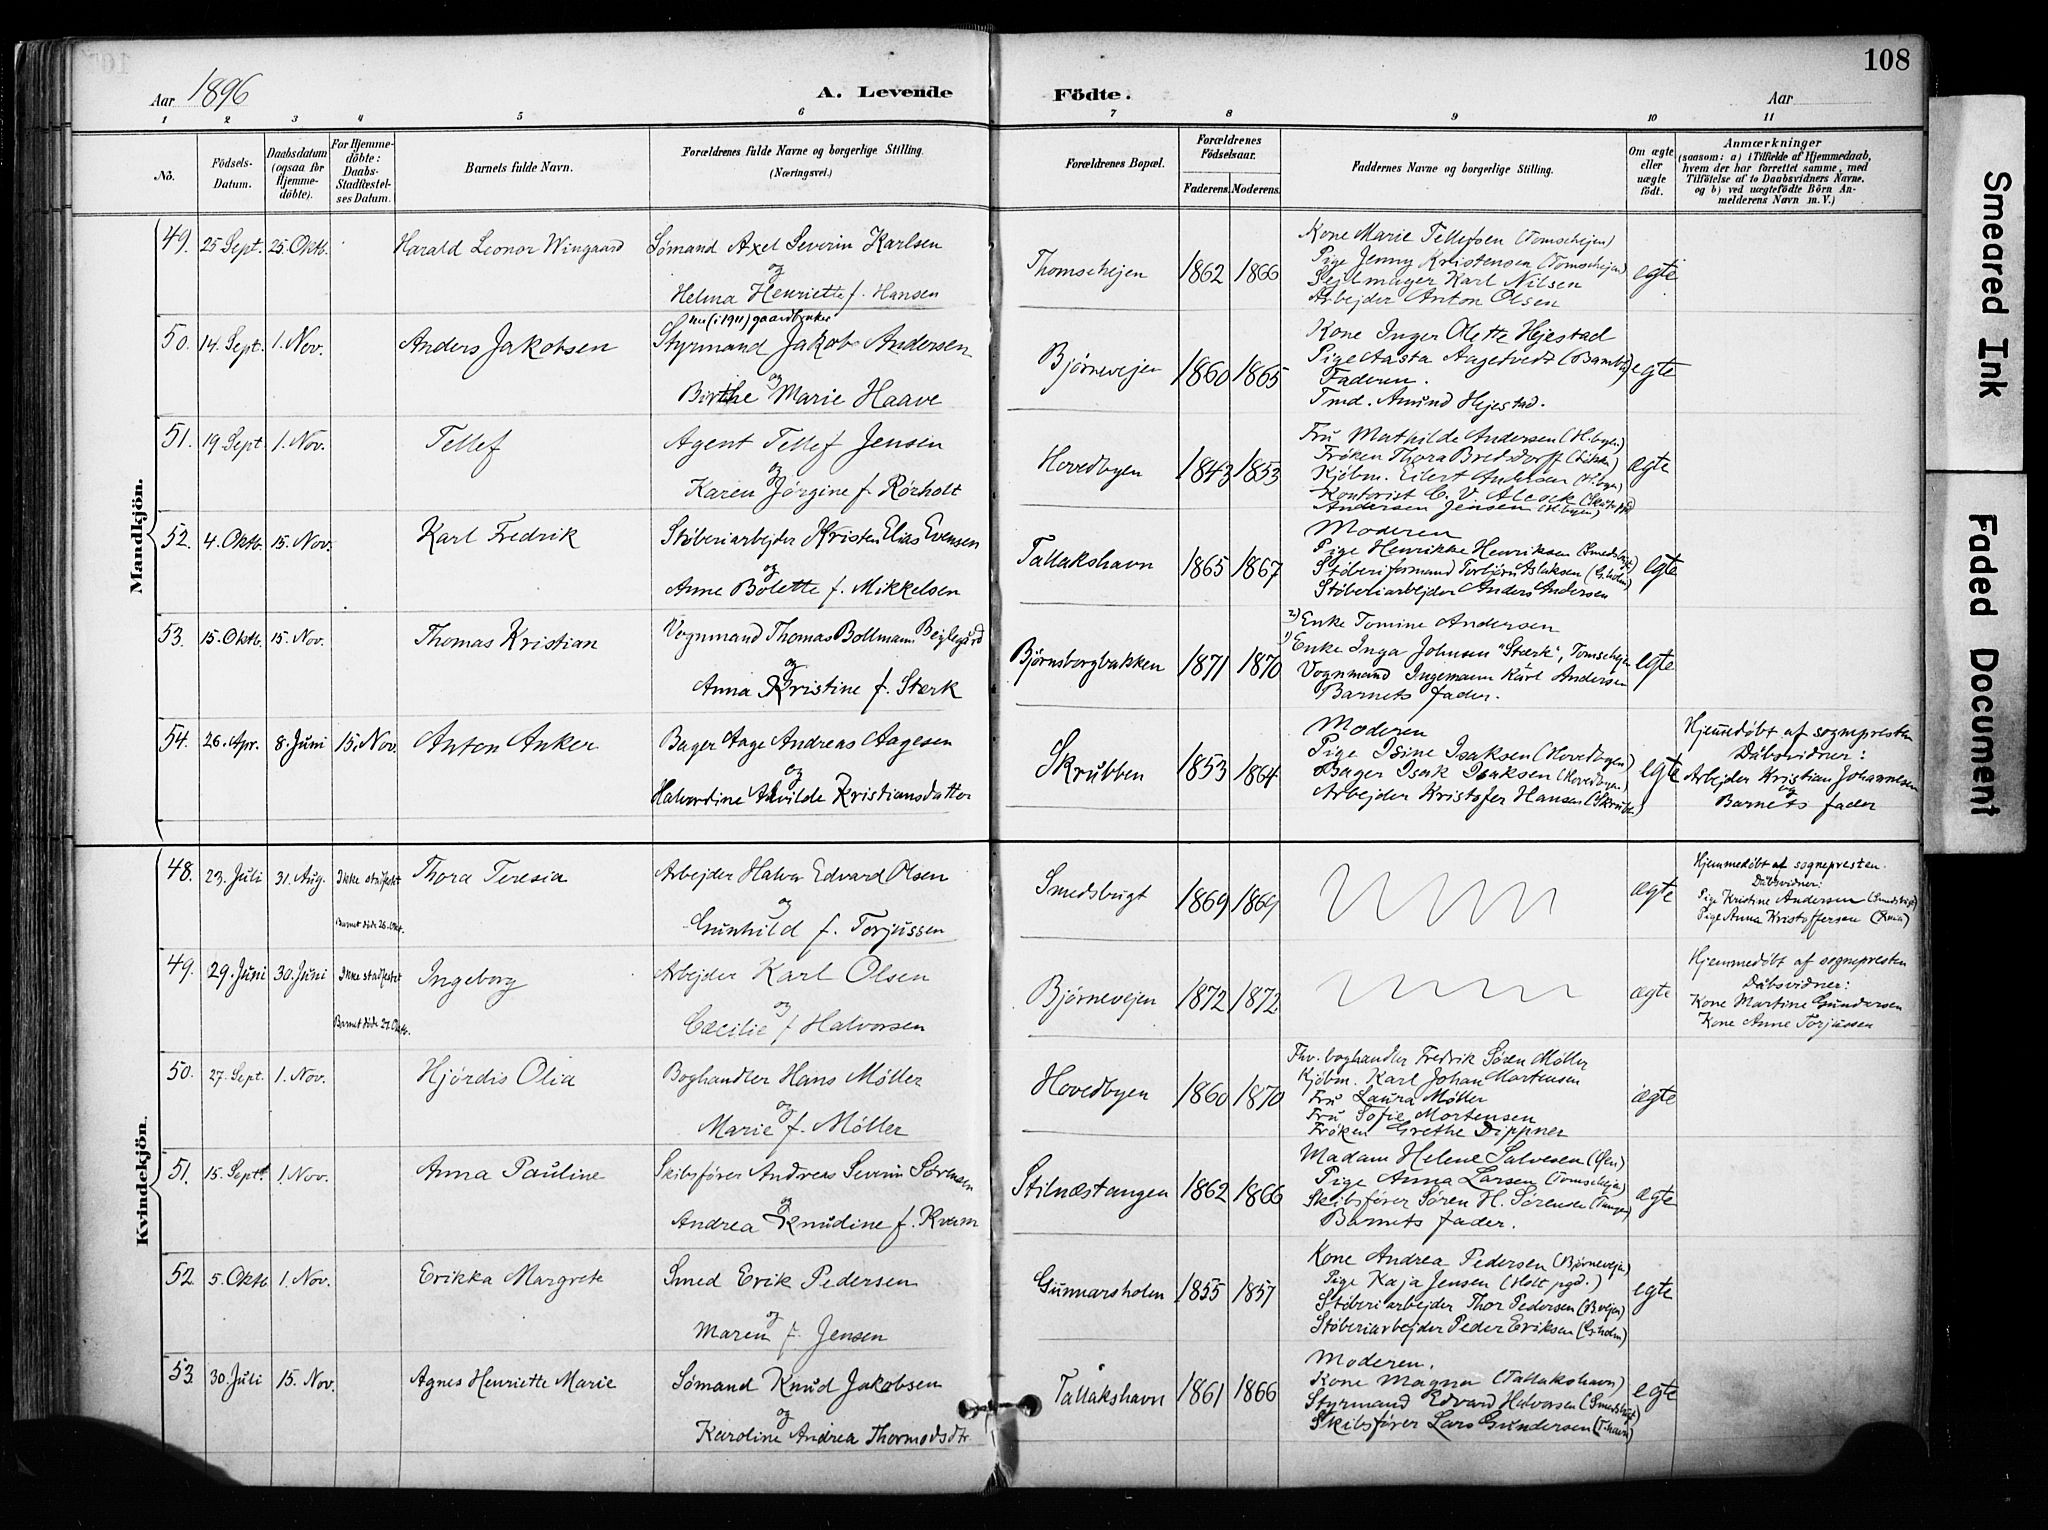 108
Aar 1896
A. Levende
Födte.
Aar
1 2 3 4 5 6 7 8 9 10 11
No.
Födsels-Datum.
Daabsdatum (ogsaa for Hjemme-döbte).
For Hjemme-döbte: Daabs-Stadfæstel-ses Datum.
Barnets fulde Navn.
Forældrenes fulde Navne og borgerlige Stilling.
(Næringsvei.)
Forældrenes Bopæl.
Forældrenes Födselsaar.
Faderens. Moderens.
Faddernes Navne og borgerlige Stilling.
Om ægte eller uægte födt.
Anmærkninger
(saasom: a) i Tilfælde af Hjemmedaab, hvem der har forrettet samme, med Tilföielse af to Daabsvidners Navne, og b) ved uægtefödte Börn An-melderens Navn m. V.)
Mandkjön.
49. 25 Sept. 25. Oktb. Harald Leonor Wingaard
Sømand Axel Severin Karlsen
og
Helma Henriette f. Hansen
Thomschejen 1862 1866
Kone Marie Tellefsen (Tomschejen)
Pige Jenny Kristensen (Tomschejen)
Sejlmager Karl Nilsen
Arbejder Anton Olsen
egte
50. 14. Sept. 1. Nov. Anders Jakobsen
nu (i 1911) gaardbruker
Styrmand Jakob Andersen
og
Birthe Marie Haave
Bjørnevejen 1860 1865
Kone Inger Olette Hejestad
Pige Aasta Aagetvedt (Bamble)
Faderen.
Tmd. Amund Hejestad.
egte
51. 19 Sept 1. Nov. Tellef
Agent Tellef Jensen
og
Karen Jørgine f. Rørholt
Hovedbyen 1843 1853
Fru Mathilde Andersen (H.byen)
Frøken Thora Bredsdorff
Kjøbm. Eilert Andersen (H.byen)
Kontorist C. V. Alcock
Andersen Jensen (H.byen)
ægte
52. 4. Oktb. 15. Nov. Karl Fredrik
Støberiarbejder Kristen Elias Evensen
og
Anne Bolette f. Mikkelsen
Tallakshavn 1865 1867
Moderen
Pige Henrikke Henriksen (Smedsbugt)
Støberiformand Torbjørn Aslaksen (G.holm)
Støberiarbejder Anders Andersen
egte
53. 15. Oktb. 15. Nov. Thomas Kristian
Vognmand Thomas Bollmann Bejlegård
og
Anna Kristine f. Stærk
Bjørnsborgbakken 1871 1870
2) Enke Tomine Andersen
1) Enke Inga Johnsen "Stærk", Tomschejen
Vognmand Ingemann Karl Andersen
Barnets fader.
egte
54. 26. Apr. 8. Juni 15. Nov. Anton Anker
Bager Aage Andreas Aagesen
og
Halvordine Alvilde Kristiansdatter
Skrubben 1853 1864
Moderen
Pige Isine Isaksen (Hovedbyen)
Bager Isak Isaksen (Hovedbyen)
Arbejder Kristofer Hansen (Skrubben)
egte
Hjemmedøbt af sognepresten
Dåbsvidner:
Arbejder Kristian Johannesen
og
Barnets fader
Kvindekjön.
48. 23. Juli 31. Aug. Ikke stadfæstet
Barnet døde 26. Okt.
Thora Teresia
Arbejder Halvor Edvard Olsen
og
Gunhild f. Torjussen
Smedsbugt 1869 1869
ægte
Hjemmedøbt af sognepresten.
Dåbsvidner:
Pige Kristine Andersen (Smedsbugt)
Pige Anna Kristoffersen
49. 29. Juni 30. Juni Ikke stadfæstet
Barnet døde 27. Oktb.
Ingeborg
Arbejder Karl Olsen
og
Cæcilie f. Halvorsen
Bjørnevejen 1872 1872
ægte
Hjemmedøbt af sognepresten
Dåbsvidner:
Kone Martine Gundersen
Kone Anne Torjussen
50. 27. Sept. 1. Nov. Hjørdis Olia
Boghandler Hans Møller
og
Marie f. Møller
Hovedbyen 1860 1870
Fhv. boghandler Fredrik Søren Møller
Kjøbm. Karl Johan Mortensen
Fru Laura Møller
Fru Sofie Mortensen
Frøken Grethe Dippner
ægte
51. 15. Sept. 1. Nov. Anna Pauline
Skibsfører Andreas Severin Sørensen
og
Andrea Knudine f. Kvam
Stilnæstangen 1862 1866
Madam Helene Salvesen
Pige Anna Larsen (Tomschejen)
Skibsfører Søren H. Sørensen (Tangen)
Barnets fader.
ægte
52 5. Oktb 1. Nov. Erikka Margrete
Smed Erik Pedersen
og
Maren f. Jensen
Gunnarsholm 1855 1857
Kone Andrea Pedersen (Bjørnevejen)
Pige Kaja Jensen (Holt pgd.)
Støberiarbejder Thor Pedersen (B.vejen)
Støberiarbejder Peder Eriksen (G.holm)
egte
53. 30. Juli 15. Nov. Agnes Henriette Marie
Sømand Knud Jakobsen
og
Karoline Andrea Thormodsdtr
Tallakshavn 1861 1866
Moderen.
Kone Magna (Tallakshavn)
Styrmand Edvard Halvorsen (Smedsbugt)
Skibsfører Lars Gundersen (T.havn)
egte
Smeared Ink
Faded Document